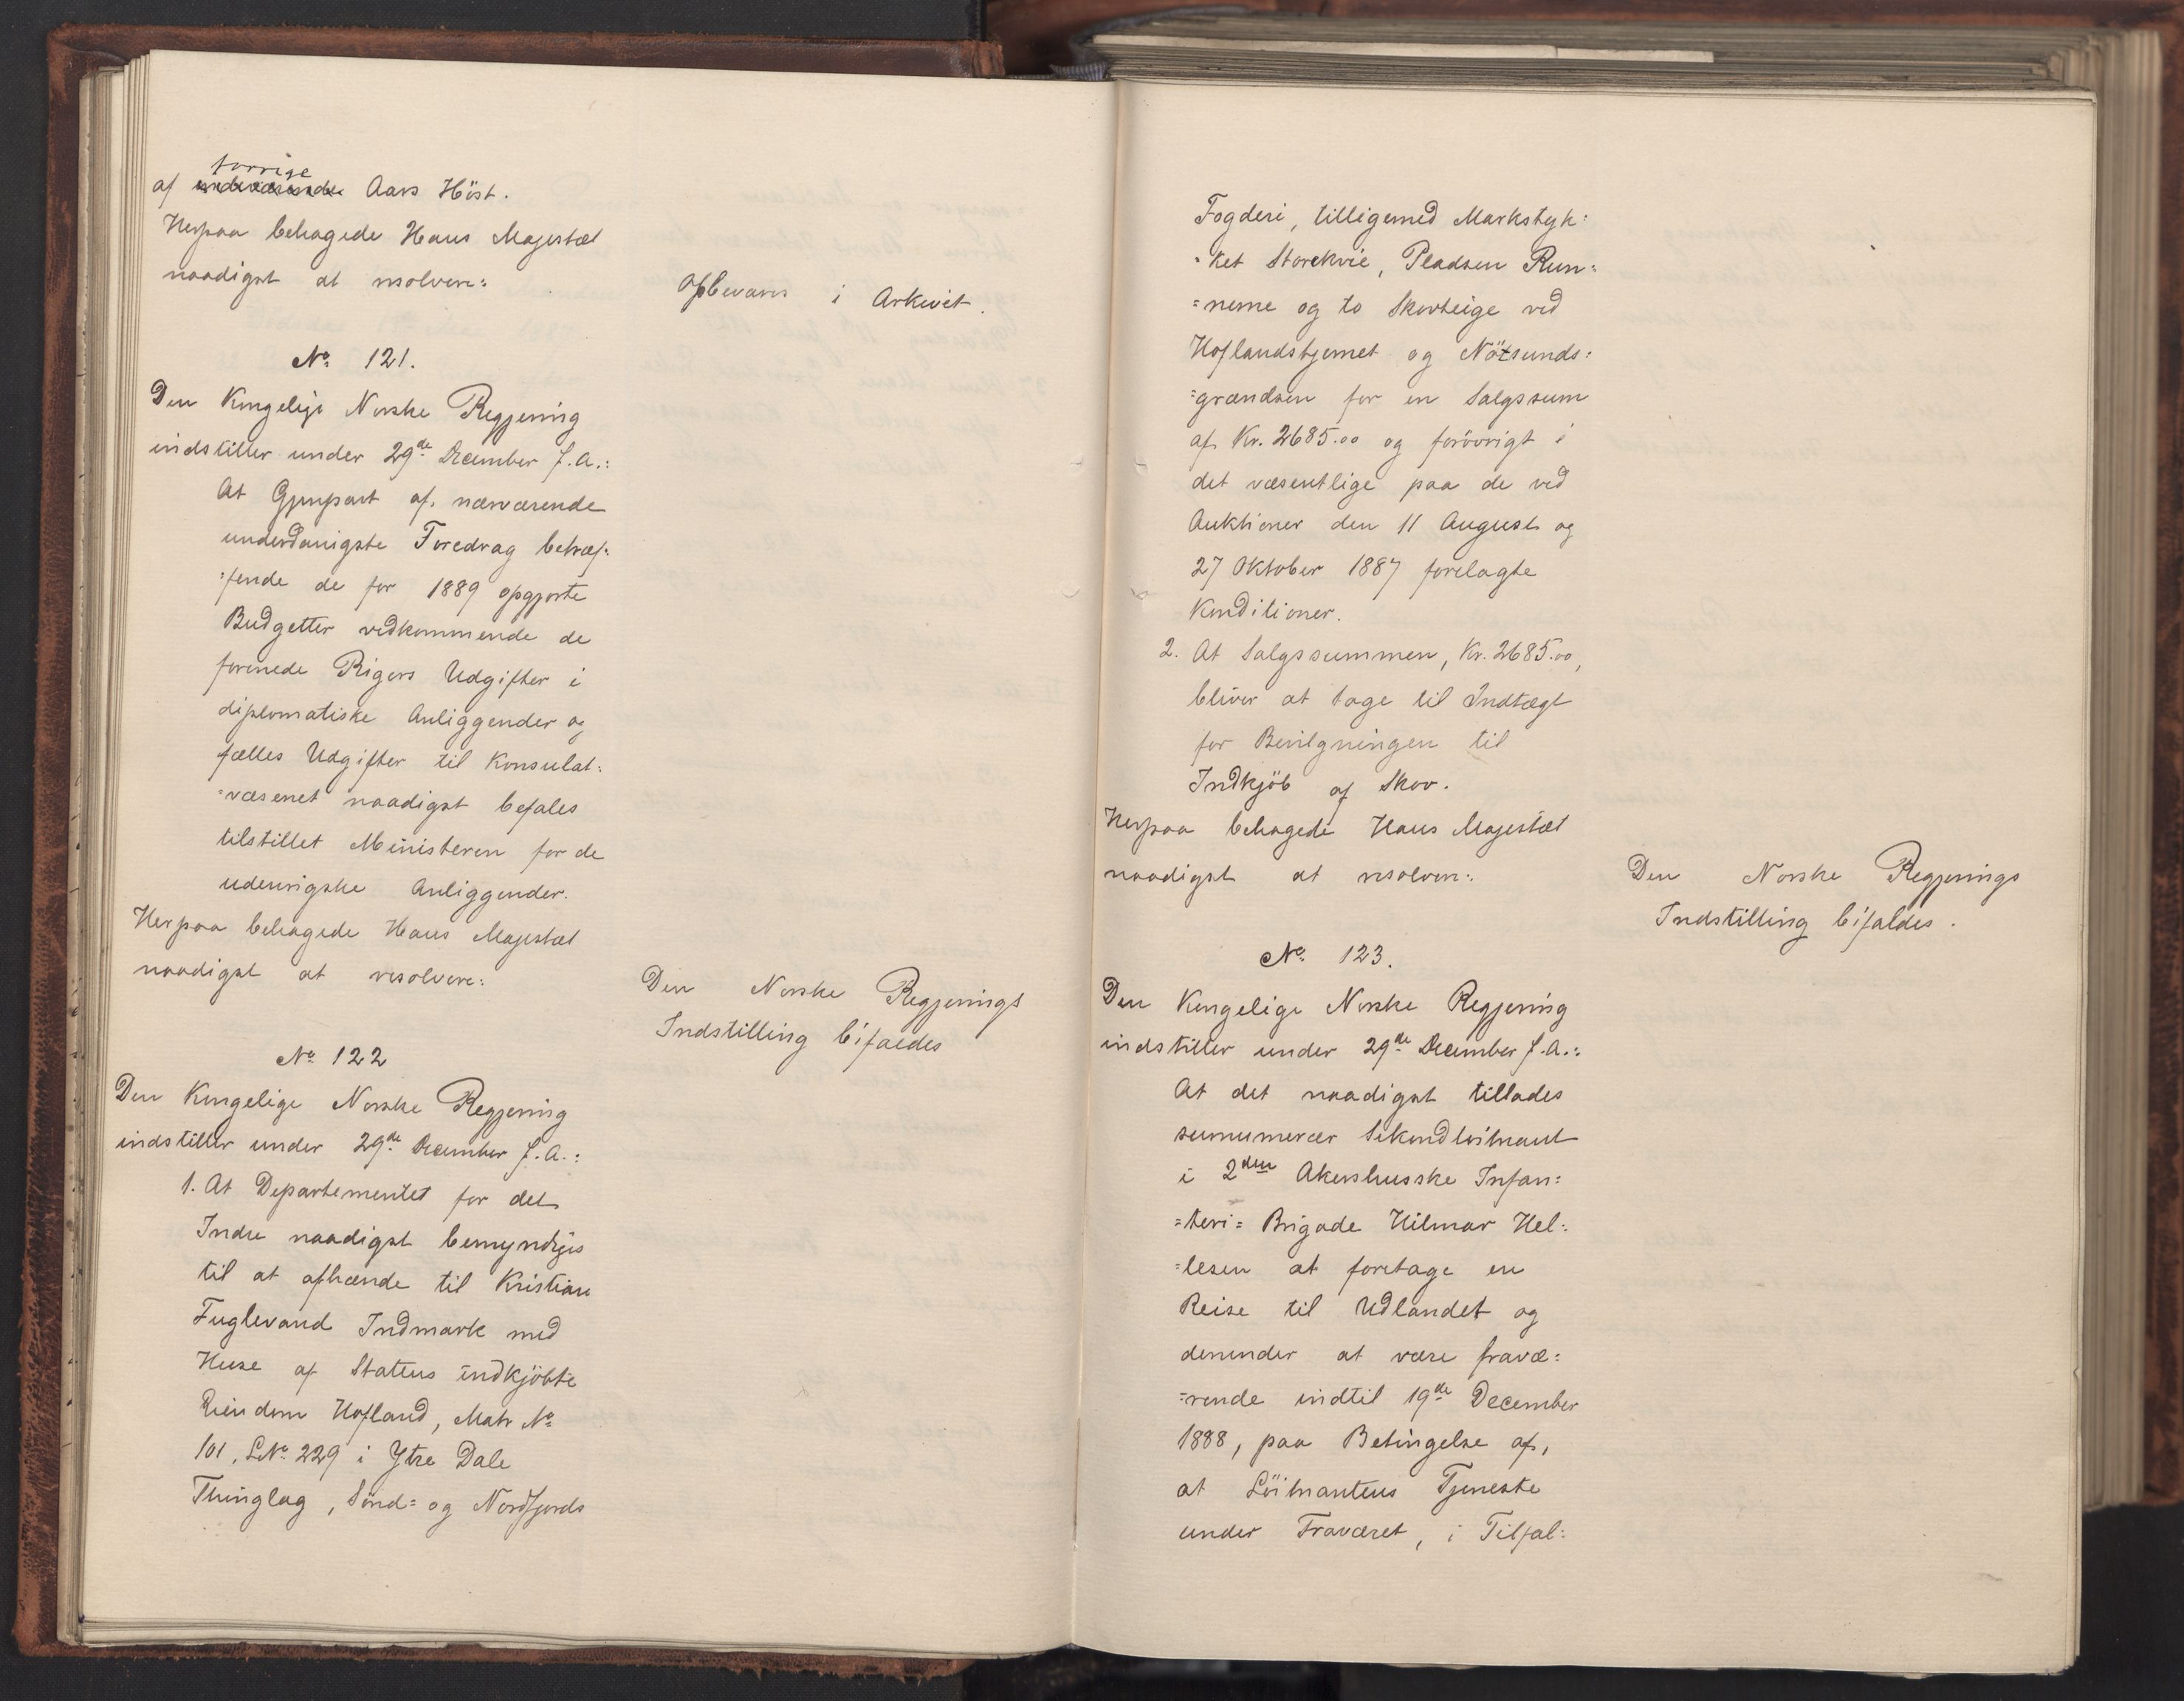 forrige
af indeværende Aars Höst.
Herpaa behagede Hans Majestæt
naadigst at resolvere:
Opbevares i Arkivet.
No 121.
Den Kongelige Norske Regjering
indstiller under 29de December f.A.:
At Gjenpart af nærværende
underdanigste Foredrag betræf=
=fende de for 1889 opgjorte
Budgetter vedkommende de
forenede Rigers Udgifter i
diplomatiske Anliggender og
fælles Udgifter til Konsulat=
=væsenet naadigst befales
tilstillet Ministeren for de
udenrigske Anliggender.
Herpaa behagede Hans Majestæt
naadigst at resolvere:
Den Norske Regjerings
Indstilling bifaldes
No 122
Den Kongelige Norske Regjering
indstiller under 29de December f.A.:
1. At Departementet for det
Indre naadigst bemyndiges
til at afhænde til Kristian
Fuglevand Indmark med
Huse af Statens indkjöbte
Eiendom Hofland, Matr No
101, LNo 229 i Ytre Dale
Thinglag, Sönd= og Nordfjords
Fogderi, tilligemed Markstyk=
=ket Storekvie, Pladsen Run=
=nerne og to Skovteige ved
Hoflandstjernet og Nötsunds=
=grændsen for en Salgssum
af Kr. 2685.00 og forövrigt i
det væsentlige paa de ved
Auktioner den 11 August og
27 Oktober 1887 forelagte
Konditioner.
2. At Salgssummen, Kr. 2685.00,
bliver at tage til Indtægt
for Bevilgningen til
Indkjöb af Skov.
Herpaa behagede Hans Majestæt
naadigst at resolvere:
Den Norske Regjerings
Indstilling bifaldes.
No 123.
Den Kongelige Norske Regjering
indstiller under 29de December f.A.:
At det naadigst tillades
surnumerær Sekondlöitnant
i 2den Akershusske Infan=
=teri= Brigade Hilmar Hel=
=lesen at foretage en
Reise til Udlandet og
derunder at være fravæ=
=rende indtil 19de December
1888, paa Betingelse af,
at Löitnantens Tjeneste
under Fraværet, i Tilfæl=